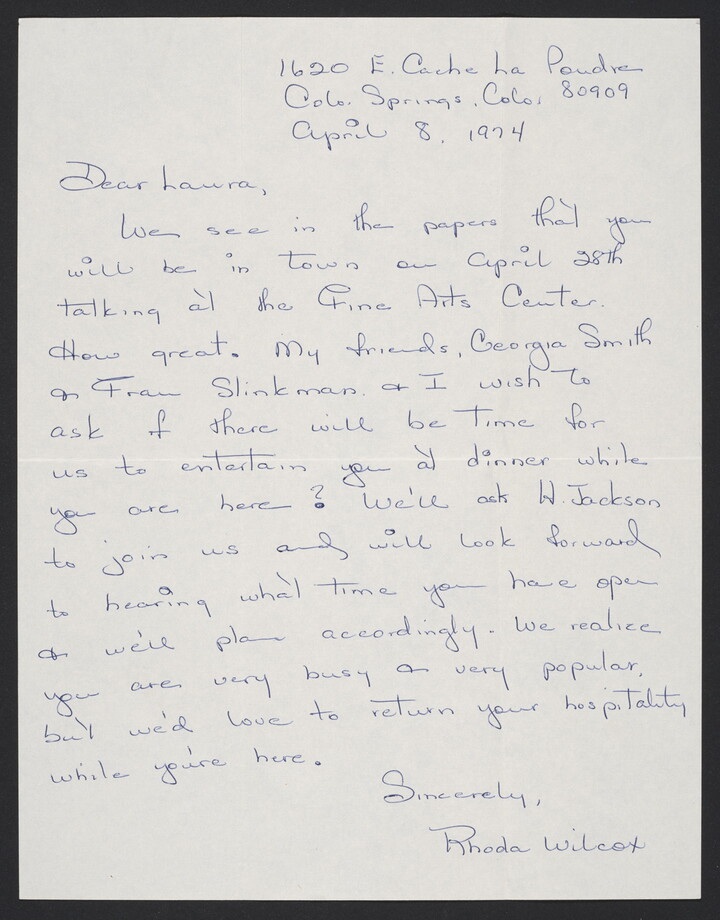 1620 E. Cache La Poudre
Colo. Springs, Colo. 80909
April 8, 1974
Dear Laura,
We see in the papers that you
will be in town on April 28th
talking at the Fine Arts Center.
How great. My friends, Georgia Smith
& Fran Slinkman. & I wish to
ask if there will be time for
us to entertain you at dinner while
you are here? We'll ask W. Jackson
to join us and will look forward
to hearing what time you have open
& we'll plan accordingly. We realize
you are very busy & very popular,
but we'd love to return your hospitality
while you're here.
Sincerely,
Rhoda Wilcox